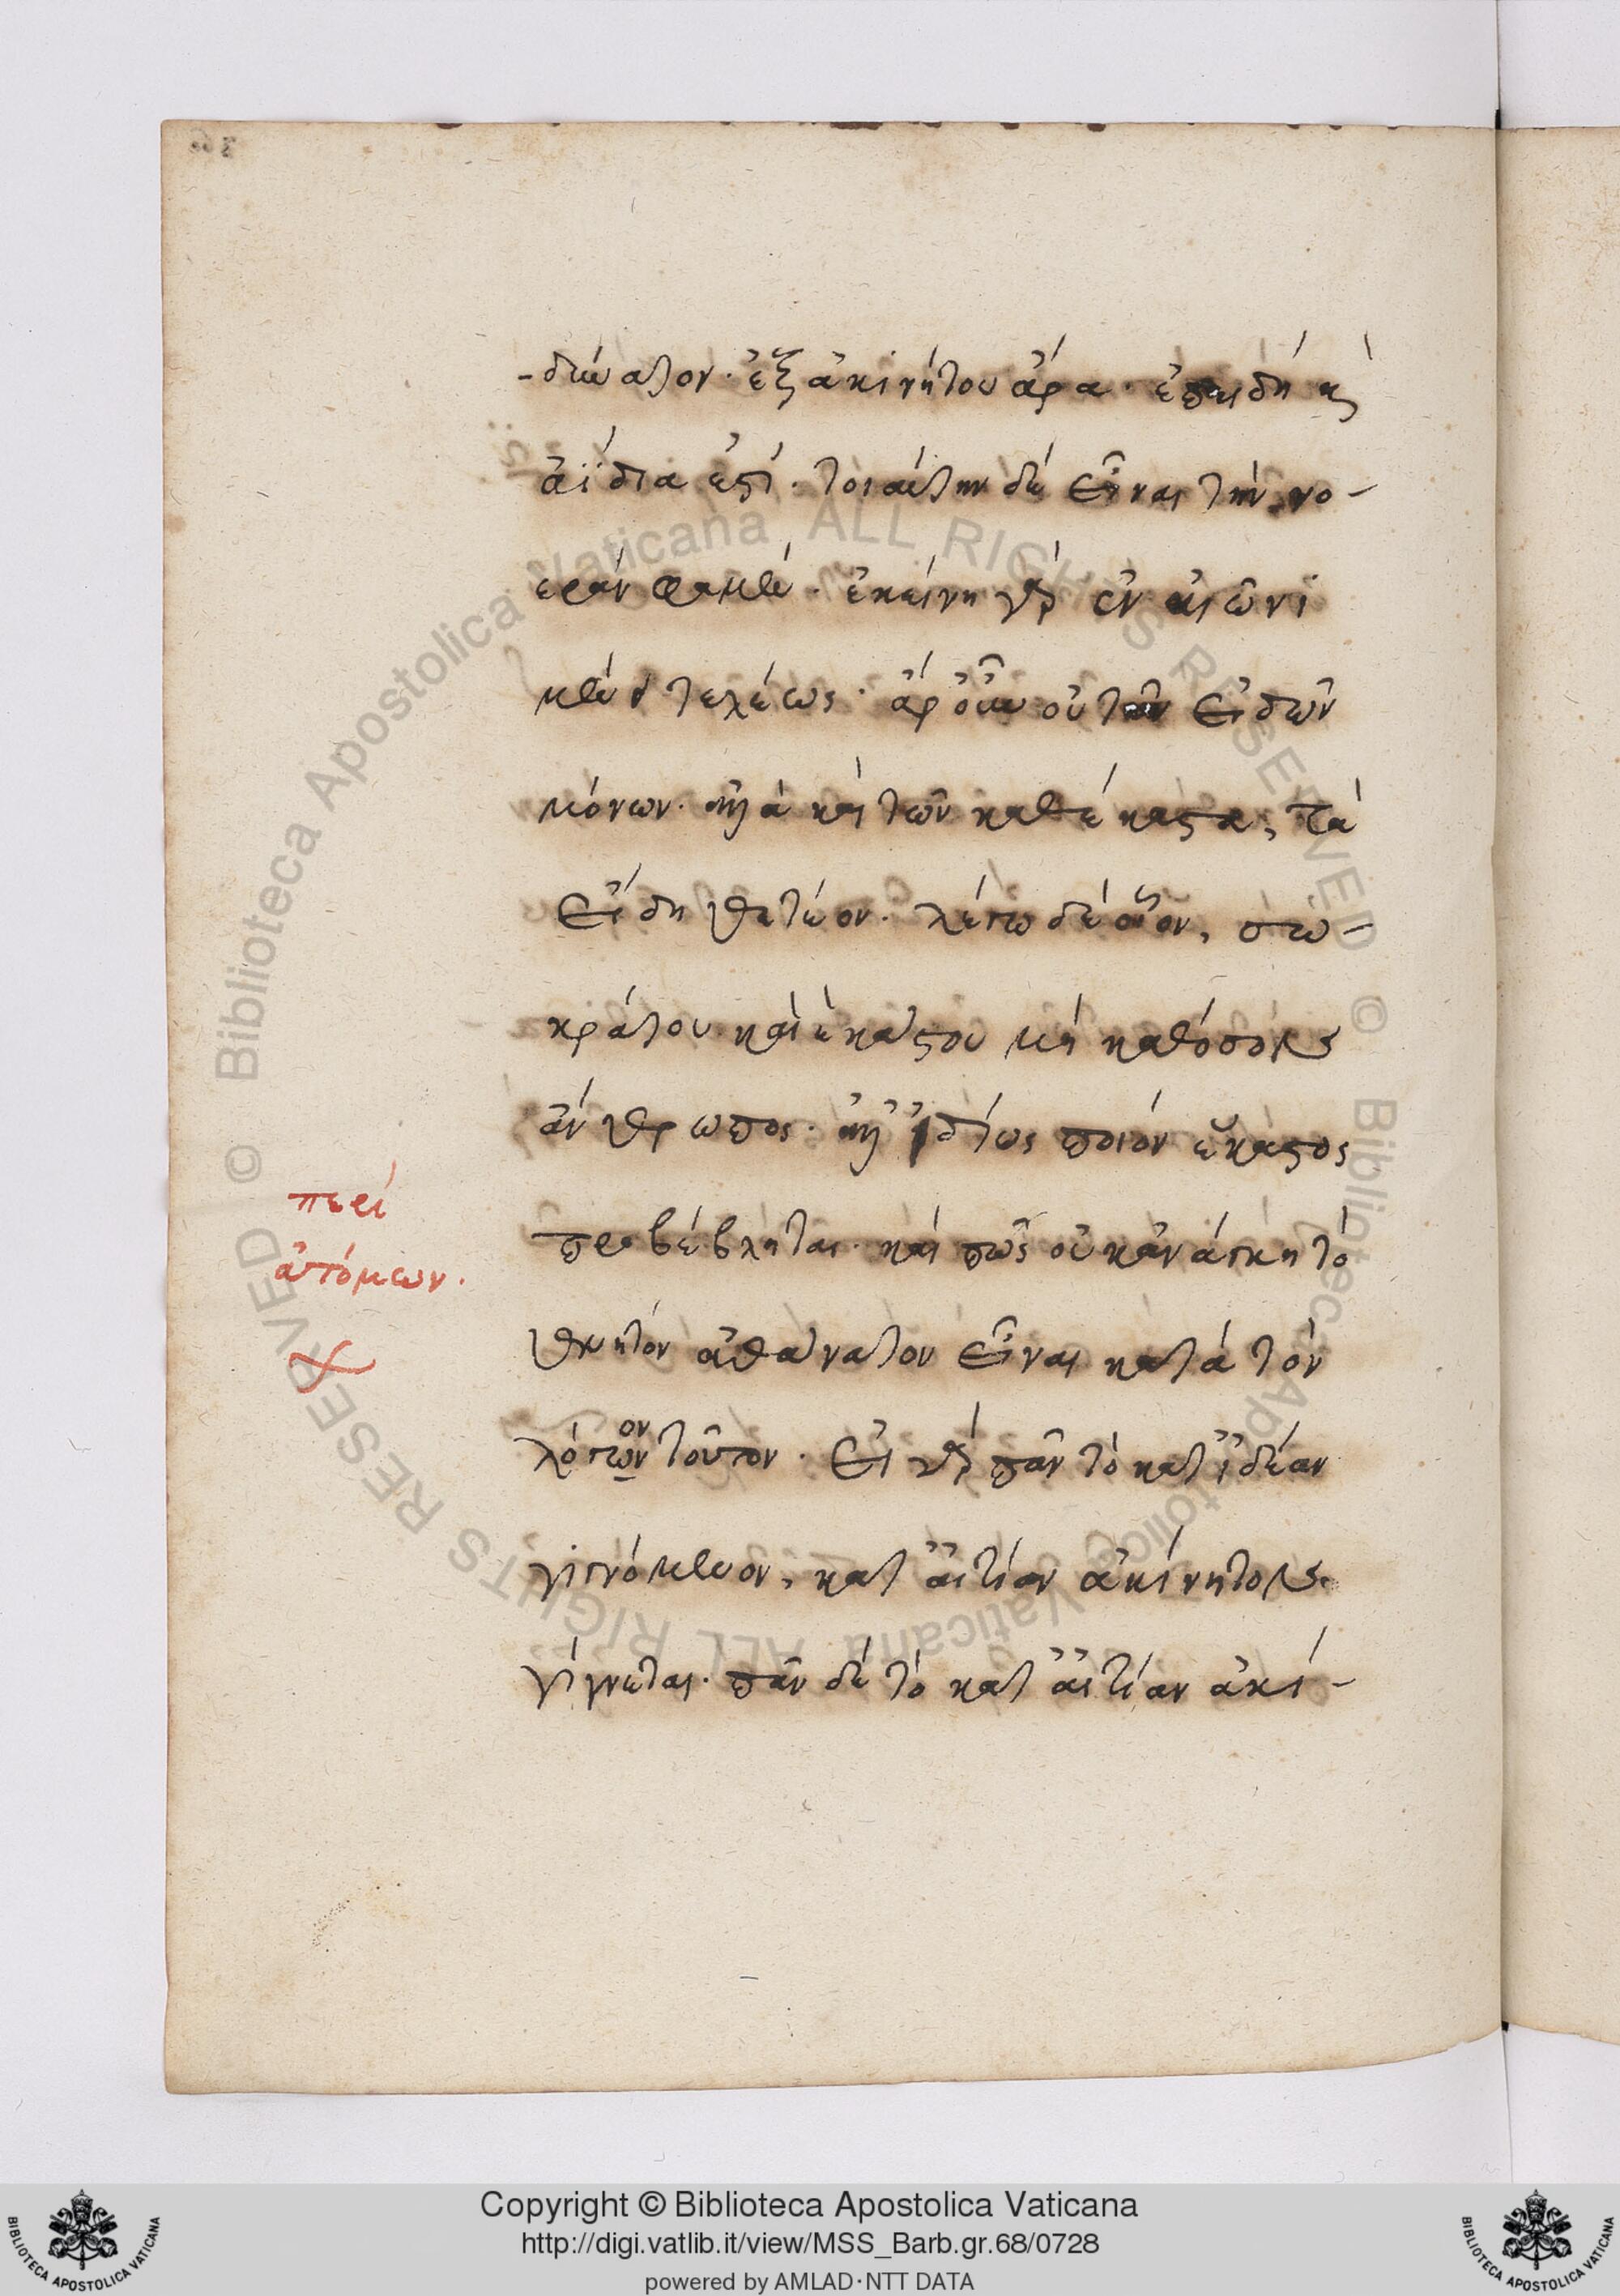 -δύνατον· ἐξ ἀκινήτου ἄρα· ἐπειδὴ καὶ
ἀΐδια ἐστί· τοιαύτην δὲ εἶναι τὴν νο-
ερὰν φαμέν· ἐκείνη γὰρ ἐν αἰῶνι
μένει τελέως· ἆρ οὖν οὐ τῶν εἰδῶν
μόνων· ἀλλὰ καὶ τῶν καθέκαστα, τὰ
εἴδη θετέον· λέγω δὲ οἷον, σω-
κράτου καὶ ἑκάστου μὴ καθόσον
ἄνθρωπος· ἀλλ ἰδίως ποιὸν ἕκαστος
προβέβληται· καὶ πῶς οὐκ ἀνάγκη τὸ
θνητὸν ἀθάνατον εἶναι κατὰ τὸν
λόγων τοῦτον· εἰ γὰρ πᾶν τὸ κατ ἰδέαν
ον
γιγνόμενον, κατ αἰτίαν ἀκίνητον
γίγνεται· πᾶν δὲ τὸ κατ αἰτίαν ἀκί-
περὶ
ἀτόμων.
Copyright © Biblioteca Apostolica Vaticana
http://digi.vatlib.it/view/MSS_Barb.gr.68/0728
powered by AMLAD·NTT DATA
BIBLIOTECA APOSTOLICA VATICANA
BIBLIOTECA APOSTOLICA VATICANA
© Biblioteca Apostolica Vaticana ALL RIGHTS RESERVED © Biblioteca Apostolica Vaticana ALL RIGHTS RESERVED